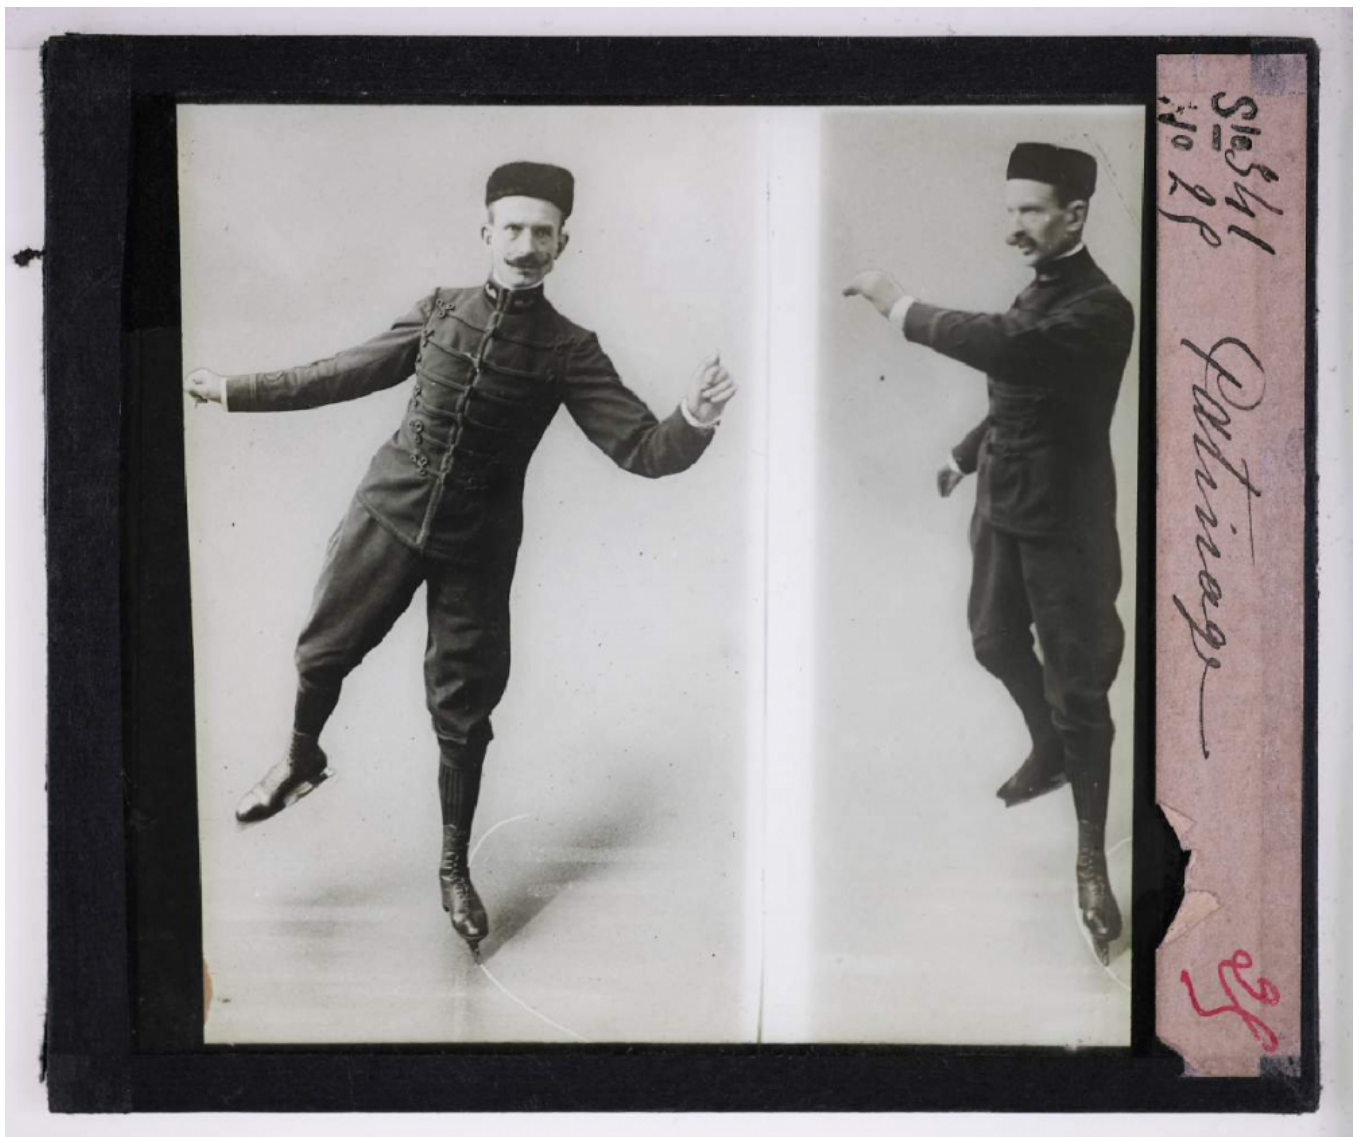 Sie 341
No 28
Patinage
28